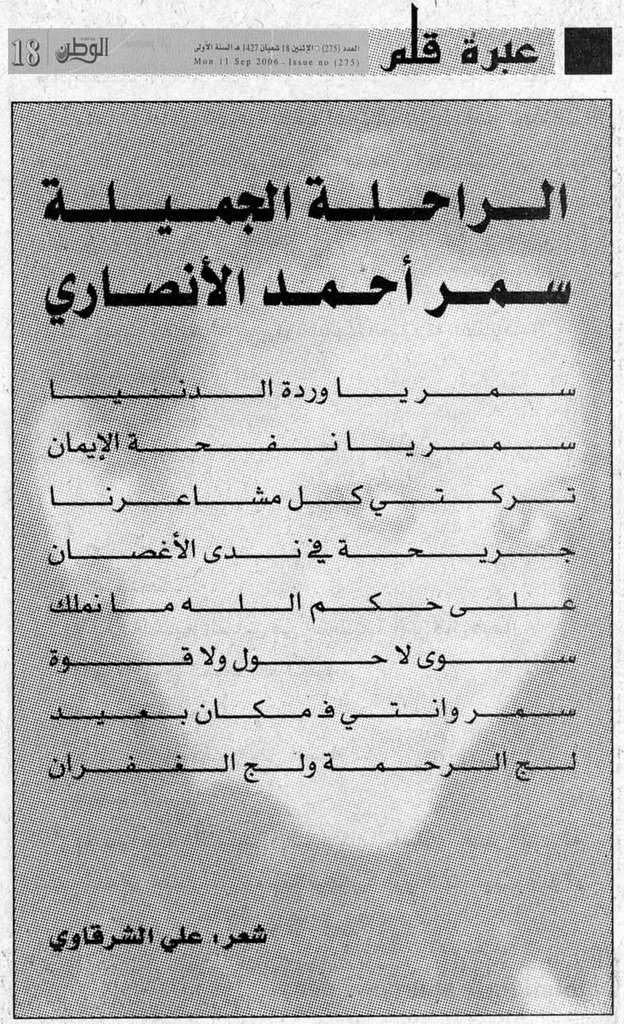 عبرة قلم
العدد (275) - الإثنين 18 شعبان 1427 هـ السنة الأولى
Mon 11 Sep 2006 - Issue no (275)
الوطن
18
الراحلة الجميلة
سمر أحمد الأنصاري
سمر يا وردة الدنيا
سمر يا نفحة الإيمان
تركتي كل مشاعرنا
جريحة في ندى الأغصان
على حكم الله ما نملك
سوى لا حول ولا قوة
سمر وانتي ف مكان بعيد
لج الرحمة ولج الغفران
شعر: علي الشرقاوي